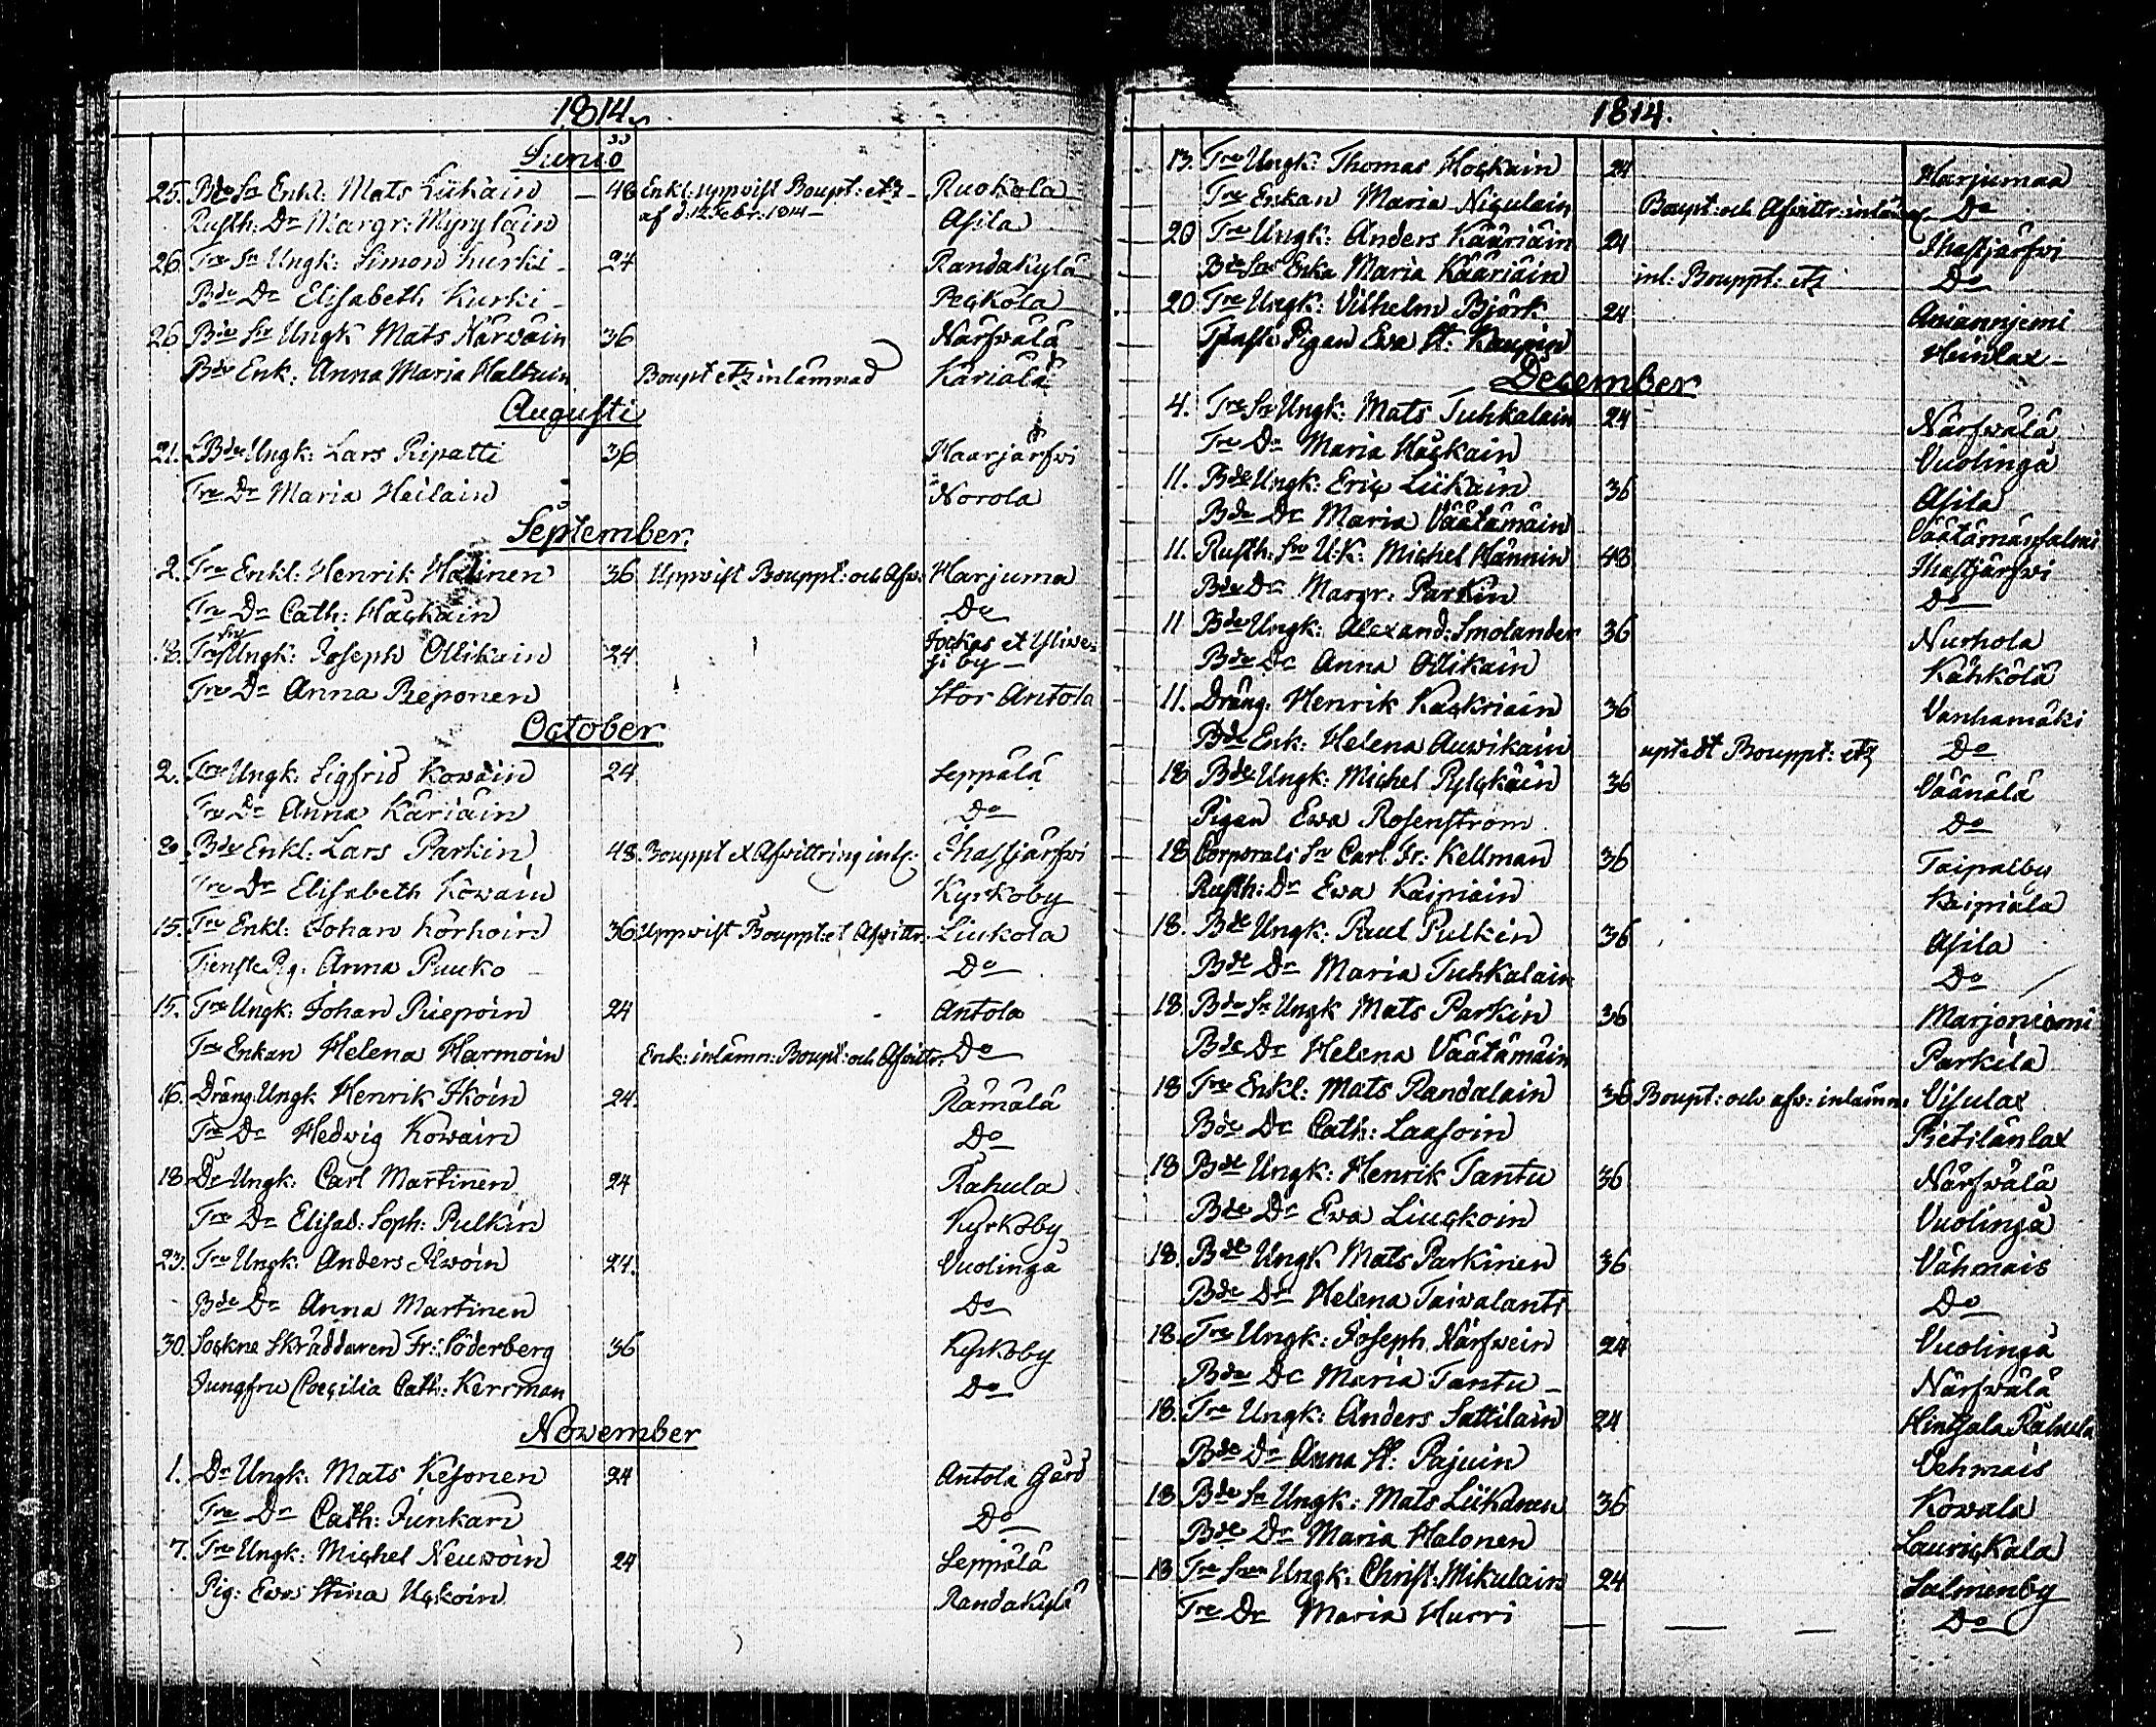 1814.
Junio
25. Bde Sn Enkl: Mats Liikain — 48 Enkl: uppvist Boupt: etz — Ruokola
af d. 12 Febr: 1814 —
Rusth: Dr Margr: Myrylain Asila
26. Tre Sn Ungk: Simon Kurki — 24 Randakylä
Bde Dr Elisabeth Kurki — Peçkola
26 Bde Sn Ungk Mats Närwäin 36 Närfwälä
Bde Enk: Anna Maria Halkuin Boupt etz inlämnad Käriälä
Augusti
21. Bde Ungk: Lars Ripatti 36 Haarjärfwi
Tre Dr Maria Heilain Norola
September.
2. Tre Enkl: Henrik Halinen 36 Uppvist Bouppt: och Afw: Harjuma
Tre Dr Cath: Häçkäin Do
18. Tre Sn Ungk: Joseph Ollikain 24 Jockas et
by —
Tre Dr Anna Reponen Stor Antola
October
2. Tre Ungk: Sigfrid Kowain 24 Leppälä
Tre Dr Anna Käriäin Do
Bde Enkl: Lars Parkin 48. Bouppt et Afwittring inlf: Ihastjärfwi
Tre Dr Elisabeth Kowain Kyrkoby
15. Tre Enkl: Johan Korhoin 36 Uppvist Bouppt: et Afwittr: Liukola
Tienste Pig: Anna Puuko — Do
15. Tre Ungk: Johan Riepoin 24 Antola
Tre Enkan Helena Harmoin Enk: inlämn: Boupt: och Afwittr. Do
16. Dräng Ungk Henrik Ikoin 24. Rämälä
Tre Dr Hedvig Kowain Do
18. Dr Ungk: Carl Martinen 24 Rahula
Tre Dr Elisab: Soph: Pulkin Kyrkoby
23. Tre Ungk: Anders Ilwoin 24. Vuolinga
Bde Dr Anna Martinen Do
30. Sockne Skräddaren Fr: Söderberg 36 Kyrkoby
Jungfru Coeçilia Cath: Kerrman Do
November
1. Dr Ungk: Mats Kesonen 24 Antola Gård
Tre Dr Cath: Junkari Do
7. Tre Ungk: Michel Neuwoin 24 Leppälä
Pig: Ewa Stina Uçkoin Randakylä
1814.
13. Tre Ungk: Thomas Hoçkain 24 Harjumaa
Tre Enkan Maria Nigulain Boupt: och Afwittr: inlämn Do
20 Tre Ungk: Anders Kääriäin 24 Ihastjärfwi
Bde Sn Enka Maria Kääriäin inl: Bouppt: etz Do
20 Tre Ungk: Vilhelm Björk 24 Anianniemi
Pigan Ewa St: Kaupin Heinlax —
December
4. Tre Sn Ungk: Mats Tuhkalain 24 Närfwälä
Tre Dr Maria Häçkäin Vuolinga
11. Bde Ungk: Eriç Liikain 36 Asila
Bde Dr Maria Väätämäin Väätämänsalmi
11. Rusth: Sn U:K: Michel Hännin 48 Ihastjärfwi
Bde Dr Margr: Parkin Do
11 Bde Ungk: Alexand: Smolander 36 Nurhola
Bde Dr Anna Ollikain Kähkölä
11. Dräng. Henrik Kaçkriain 36 Vanhamäki
Bde Enk: Helena Auwikain Bouppt: etz Do
18 Bde Ungk: Michel Pylçkäin 36 Väänälä
Pigan Ewa Rosenström Do
18 Corporals Sn Carl Fr: Kellman 36 Taipalby
Rusth: Dr Ewa Kaipiain Kaipiala
18. Bde Ungk: Paul Pulkin 36 Asila
Bde Dr Maria Tuhkalain Do
18. Bde Sn Ungk Mats Parkin 36 Marjoniemi
Bde Dr Helena Väätämäin Parkila
18 Tre Enkl: Mats Randalain 36 Boupt: och afw: inlämn: Visulax
Bde Dr Cath: Laasoin Pietilänlax
18 Bde Ungk: Henrik Tantu 36 Närfwälä
Bde Dr Ewa Liuçkoin Vuolinga
18. Bde Ungk Mats Parkinen 36 Vähmais
Bde Dr Helena Taivalanti Do
18. Tre Ungk: Joseph Närfwein 24 Vuolinga
Bde Dr Maria Tantu — Närfwälä
18. Tre Ungk: Anders Sattilain 24 Hintsala Rahula
Bde Dr Anna St: Pajuin Vehmais
18 Bde Sn Ungk: Mats Liikanen 36 Kowala
Bde Dr Maria Halonen Lauriçkala
18 Tre Sn Ungk: Christ: Mikulain 24 Salmenby
Tre Dr Maria Hurri — — — Do